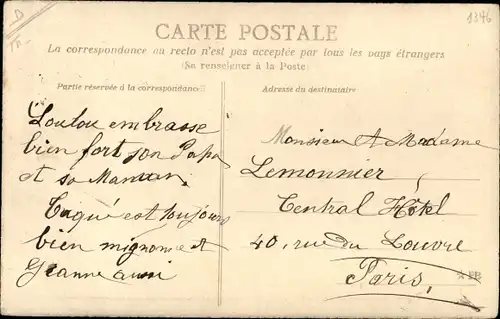 1346
D
CARTE POSTALE
La correspondance au recto n'est pas acceptée par tous les pays étrangers
(Se renseigner à la Poste)
Partie réservée à la correspondance
Adresse du destinataire
Loulou embrasse
bien fort son Papa
et sa Maman
est toujours
bien mignonne et
Jeanne aussi
Monsieur et Madame
Lemonnier
Central Hôtel
40, rue du Louvre
Paris